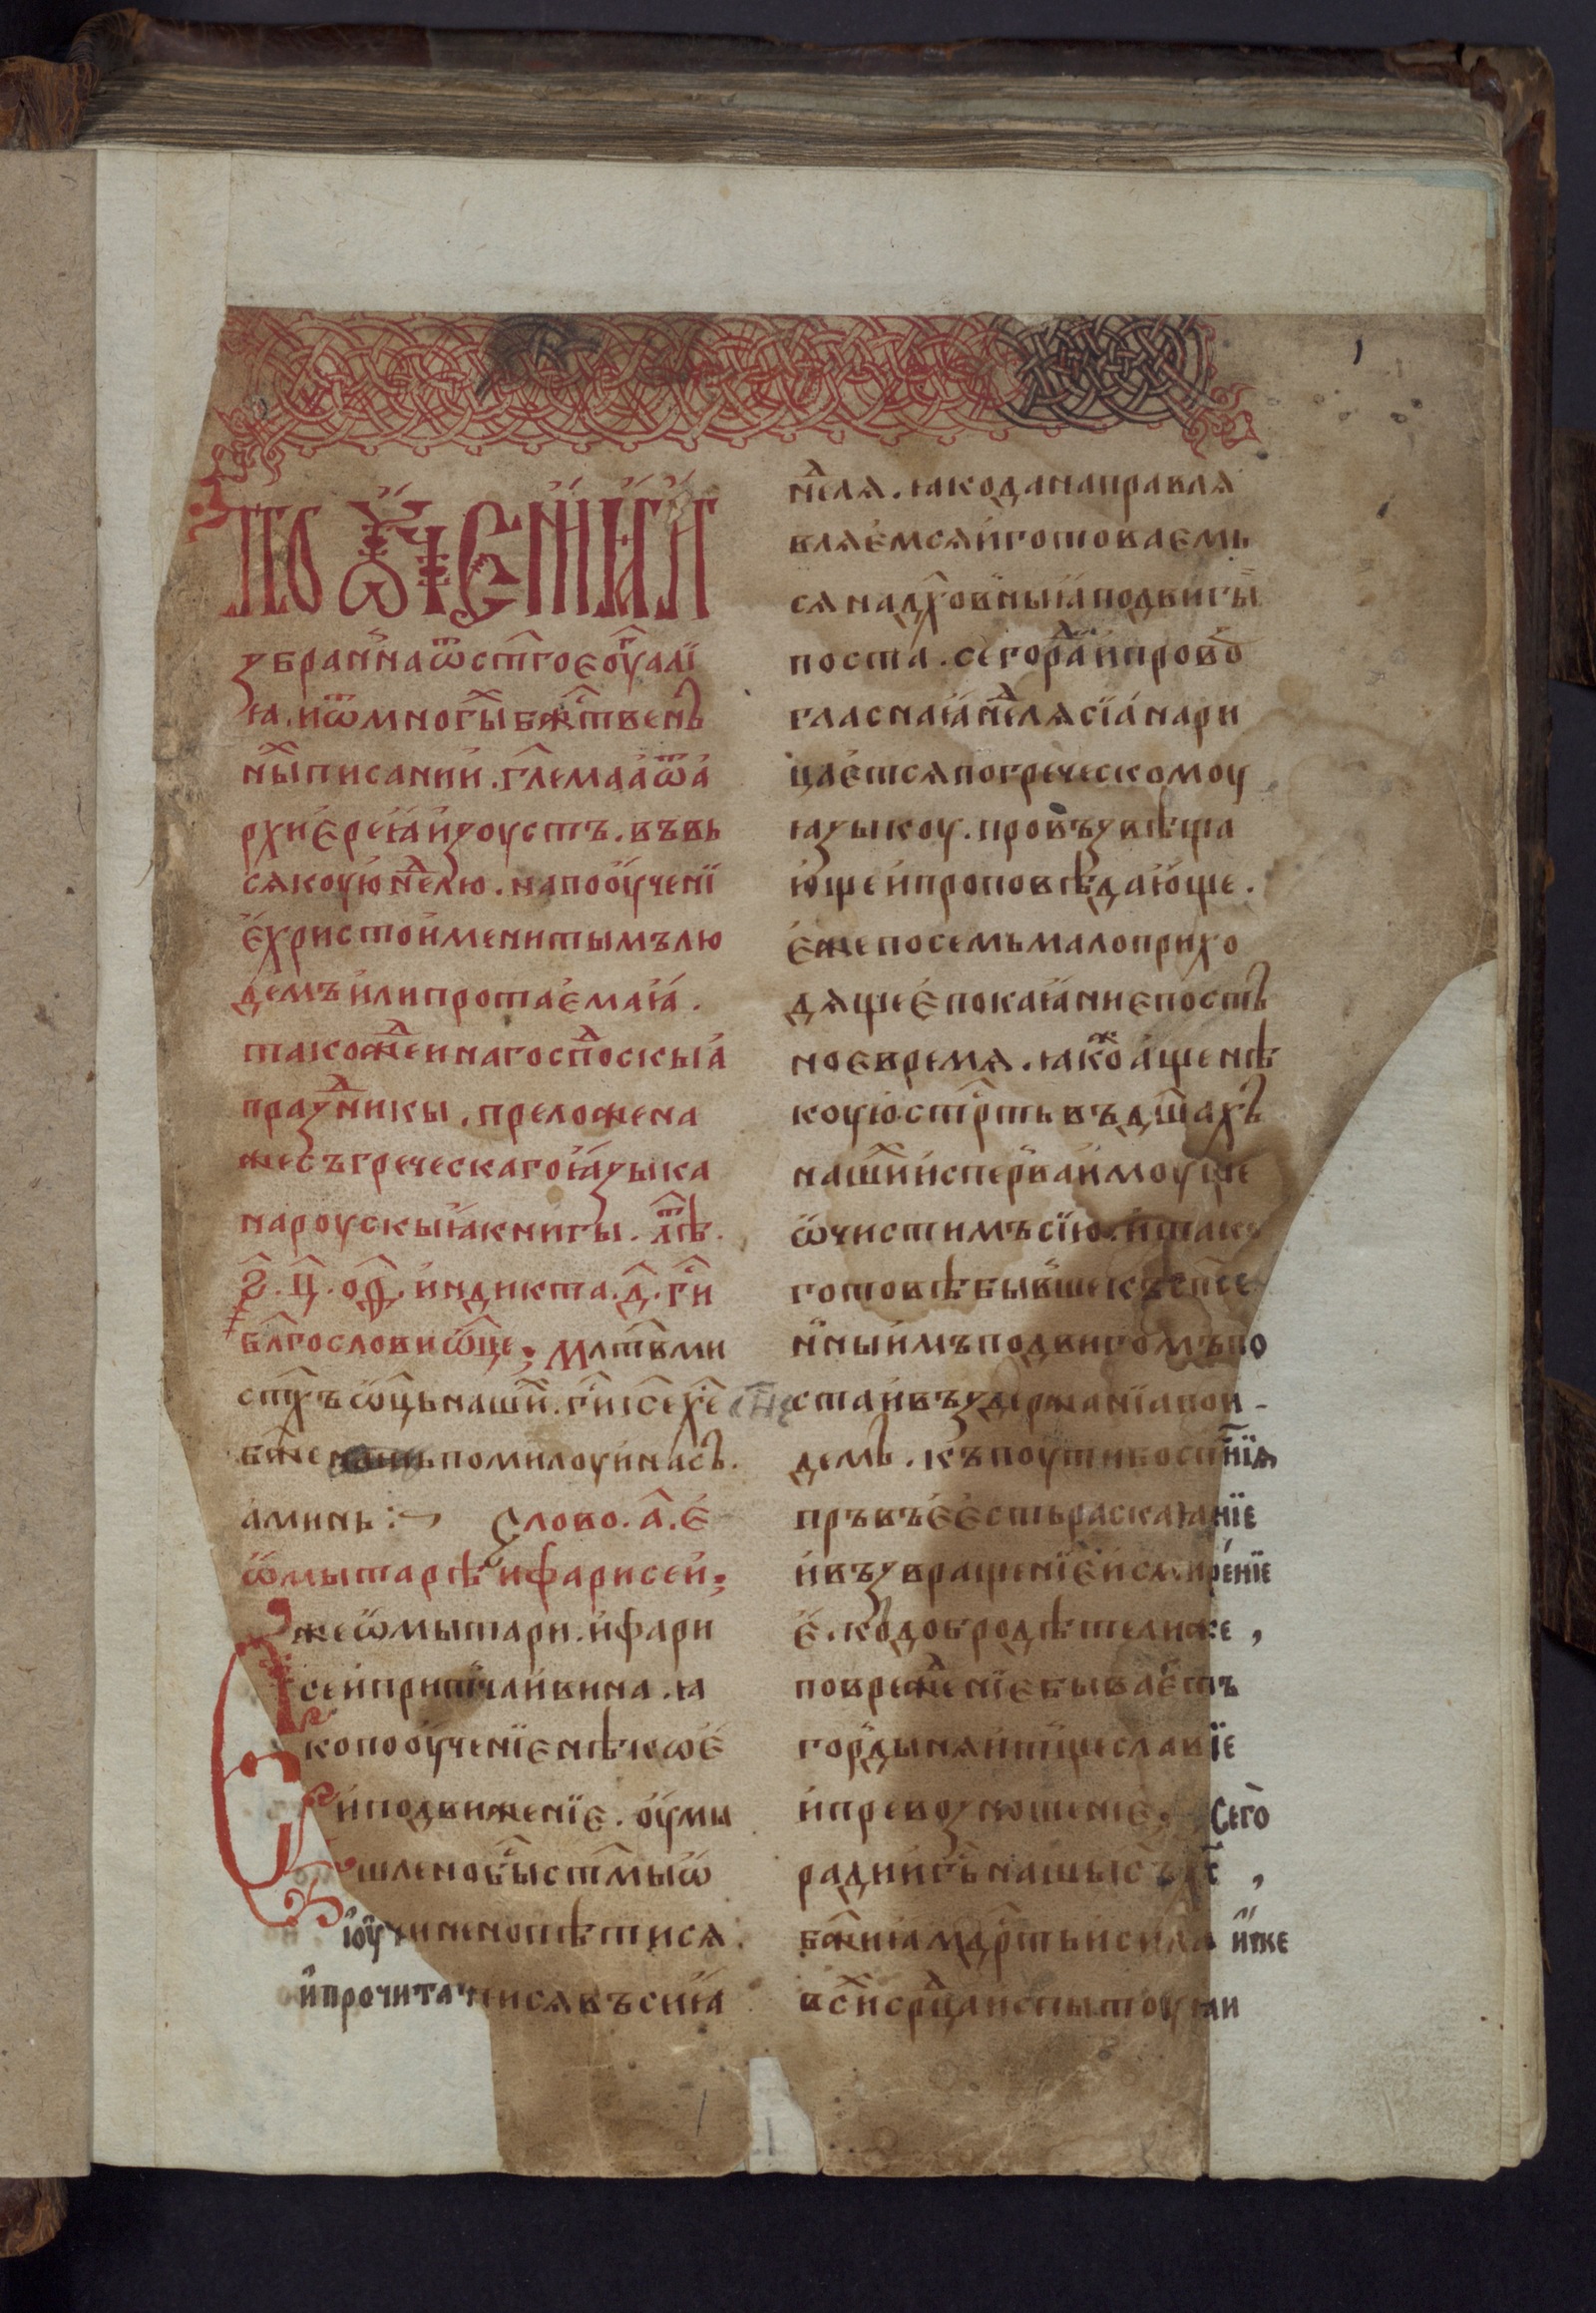 поу҆че́нїа и҆
збра́ннаѿст҃гоеоу҆ⷢ҇алї
ꙗ. иѿмногы́ⷯбж҃твенъ
ны́ⷯписании. гл҃емааѿа
рхиере́ꙗи҆зоустъ. въвь
сякоую҆нⷣелю. напооу҆ченї
е҆христои҆менитымълю
демъи҆липрота́е҆маꙗ.
такожⷣеинагоспⷣоскыꙗ
празⷣникы. преложена
жесъгреческагоꙗ҆зыка
нароускыꙗкнигы. лⷮѣ.
ѕ҃. ц҃. о҃ѳ. и҆ндикта. д҃. гї҃и
бл҃гословиѿ҃че; Млт҃вми
ст҃хъѿц҃ьнашиⷯ. гї҃іс҃ех҃е сн҃е
бж҃е помилоуи҆насъ.
а҆минь :~ Слово. а҃. Е҆
ѡ҆мытарѣ и҆фарисеи;
жеѡ҆мытари. и҆фари
сеи҆притчаи҆вина. ꙗ
копооу҆ченїенѣкое҆
и҆подвиженїе. оу҆мы
шленобы́ⷭ҇ст҃мыѡ
їоу҆чиненопѣтися.
и҆прочитатисявъсиꙗ
нⷣеля. ꙗкоданаправля
вляе҆мсяи҆готоваемь
сянадх҃овныꙗподвигы
поста. сегораⷣи҆и҆прово
гласнаꙗнⷣелясїꙗ҆нари
цае҆тсяпогреческомоу
ꙗзыкоу. провъзвѣща
ю҆щеи҆проповѣдаю҆ще.
е҆жепосемьмалоприхо
дящее҆покаꙗниепостъ
ноевремя. ꙗкоⷤа҆щенѣ
коую҆стрⷭ҇тьвъдш҃ахъ
нашиⷯи҆сперваи҆моуще
ѡ҆чистимъсїю. и҆тако
готовѣбывшекъсп҃се
нныи҆мъподвигомъпо
стаи҆въздержанїапои-
демъ. къпоутивосп҃нїѧ
пръвъе҆е҆стьраскаꙗнїе
и҆възвращенїеи҆смирéнїе
е҆. кодобродѣтелиже ,
поврежⷣенїебывае҆тъ
гордыняи҆тщеславїе
и҆превозношение, Сего̀
радии҆гь҃нашьіс҃ъх҃с ,
бж҃иꙗмⷣрⷭ҇тьисила и҆же
всⷯи҆срⷣцаиспытоуꙗи